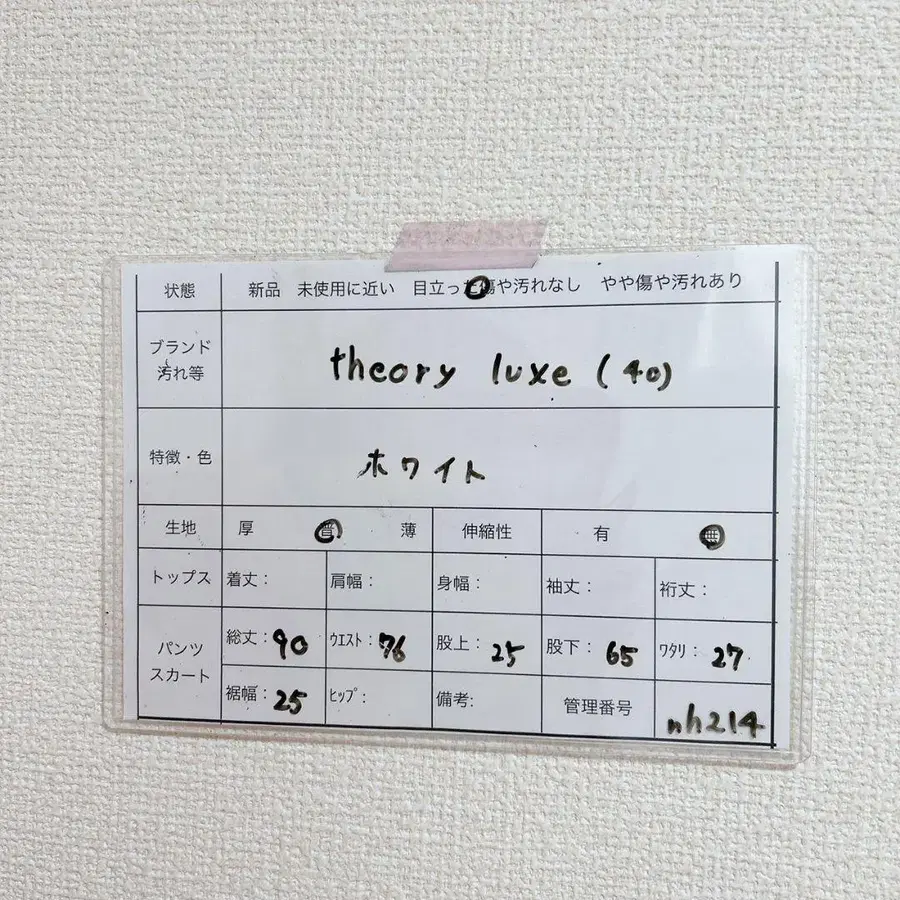 状態 新品 未使用に近い 目立った傷や汚れなし やや傷や汚れあり
ブランド
汚れ等
theory luxe (40)
特徴・色 ホワイト
生地 厚 普 薄 伸縮性 有 無
トップス 着丈: 肩幅: 身幅: 袖丈: 裄丈:
パンツ
スカート
総丈:90 ウエスト:76 股上:25 股下:65 ワタリ:27
裾幅:25 ヒップ: 備考: 管理番号 nh214